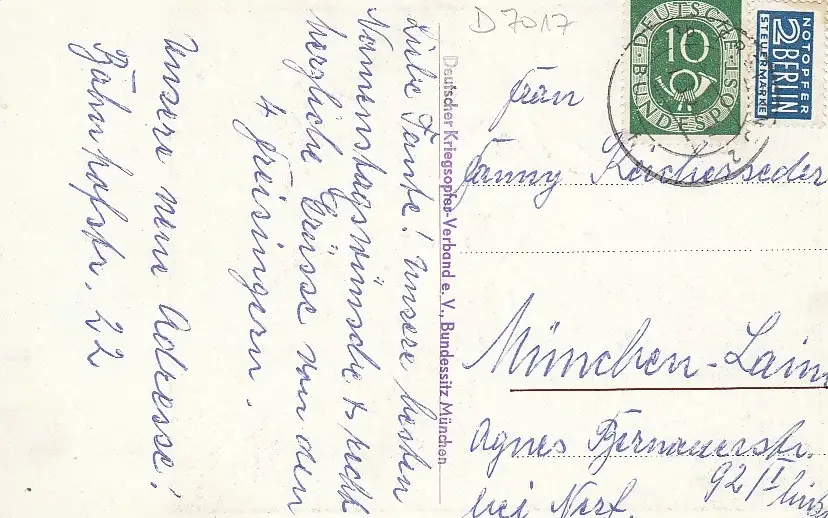 D 7017
DEUTSCHE BUNDESPOST
10
NOTOPFER
2 BERLIN
STEUERMARKE
Liebe Tante! Unsere besten
Namenstagswünsche & recht
herzliche Grüsse von den
4 Freisingern.
Unsere neue Adresse!
Bahnhofstr. 22
Deutscher Kriegsopfer-Verband e. V., Bundessitz München
Frau
Fanny
München-Laim
Agnes Bernauerstr.
92/I links
bei Nerf.